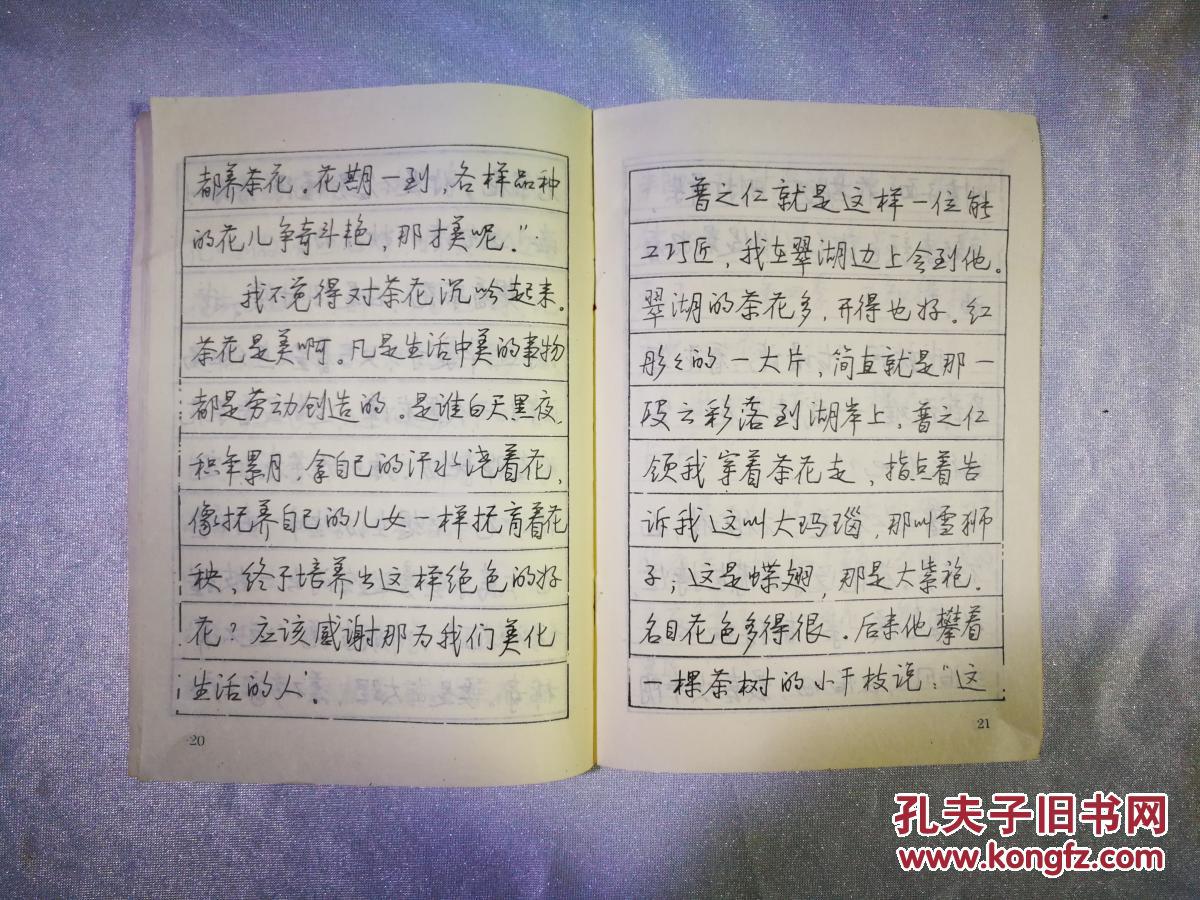 都养茶花。花期一到，各样品种
的花儿争奇斗艳，那才美呢。”
我不觉得对茶花沉吟起来。
茶花是美啊。凡是生活中美的事物
都是劳动创造的。是谁白天黑夜，
积年累月，拿自己的汗水浇着花，
像抚养自己的儿女一样抚育着花
秧，终于培养出这样绝色的好
花？应该感谢那为我们美化
生活的人。
20
普之仁就是这样一位能
工巧匠，我在翠湖边上会到他。
翠湖的茶花多，开得也好，红
彤々的一大片，简直就是那一
段云彩落到湖岸上，普之仁
领我穿着茶花走，指点着告
诉我这叫大玛瑙，那叫雪狮
子；这是蝶翅，那是大紫袍。
名目花色多得很。后来他攀着
一棵茶树的小干枝说：“这
21
孔夫子旧书网
www.kongfz.com